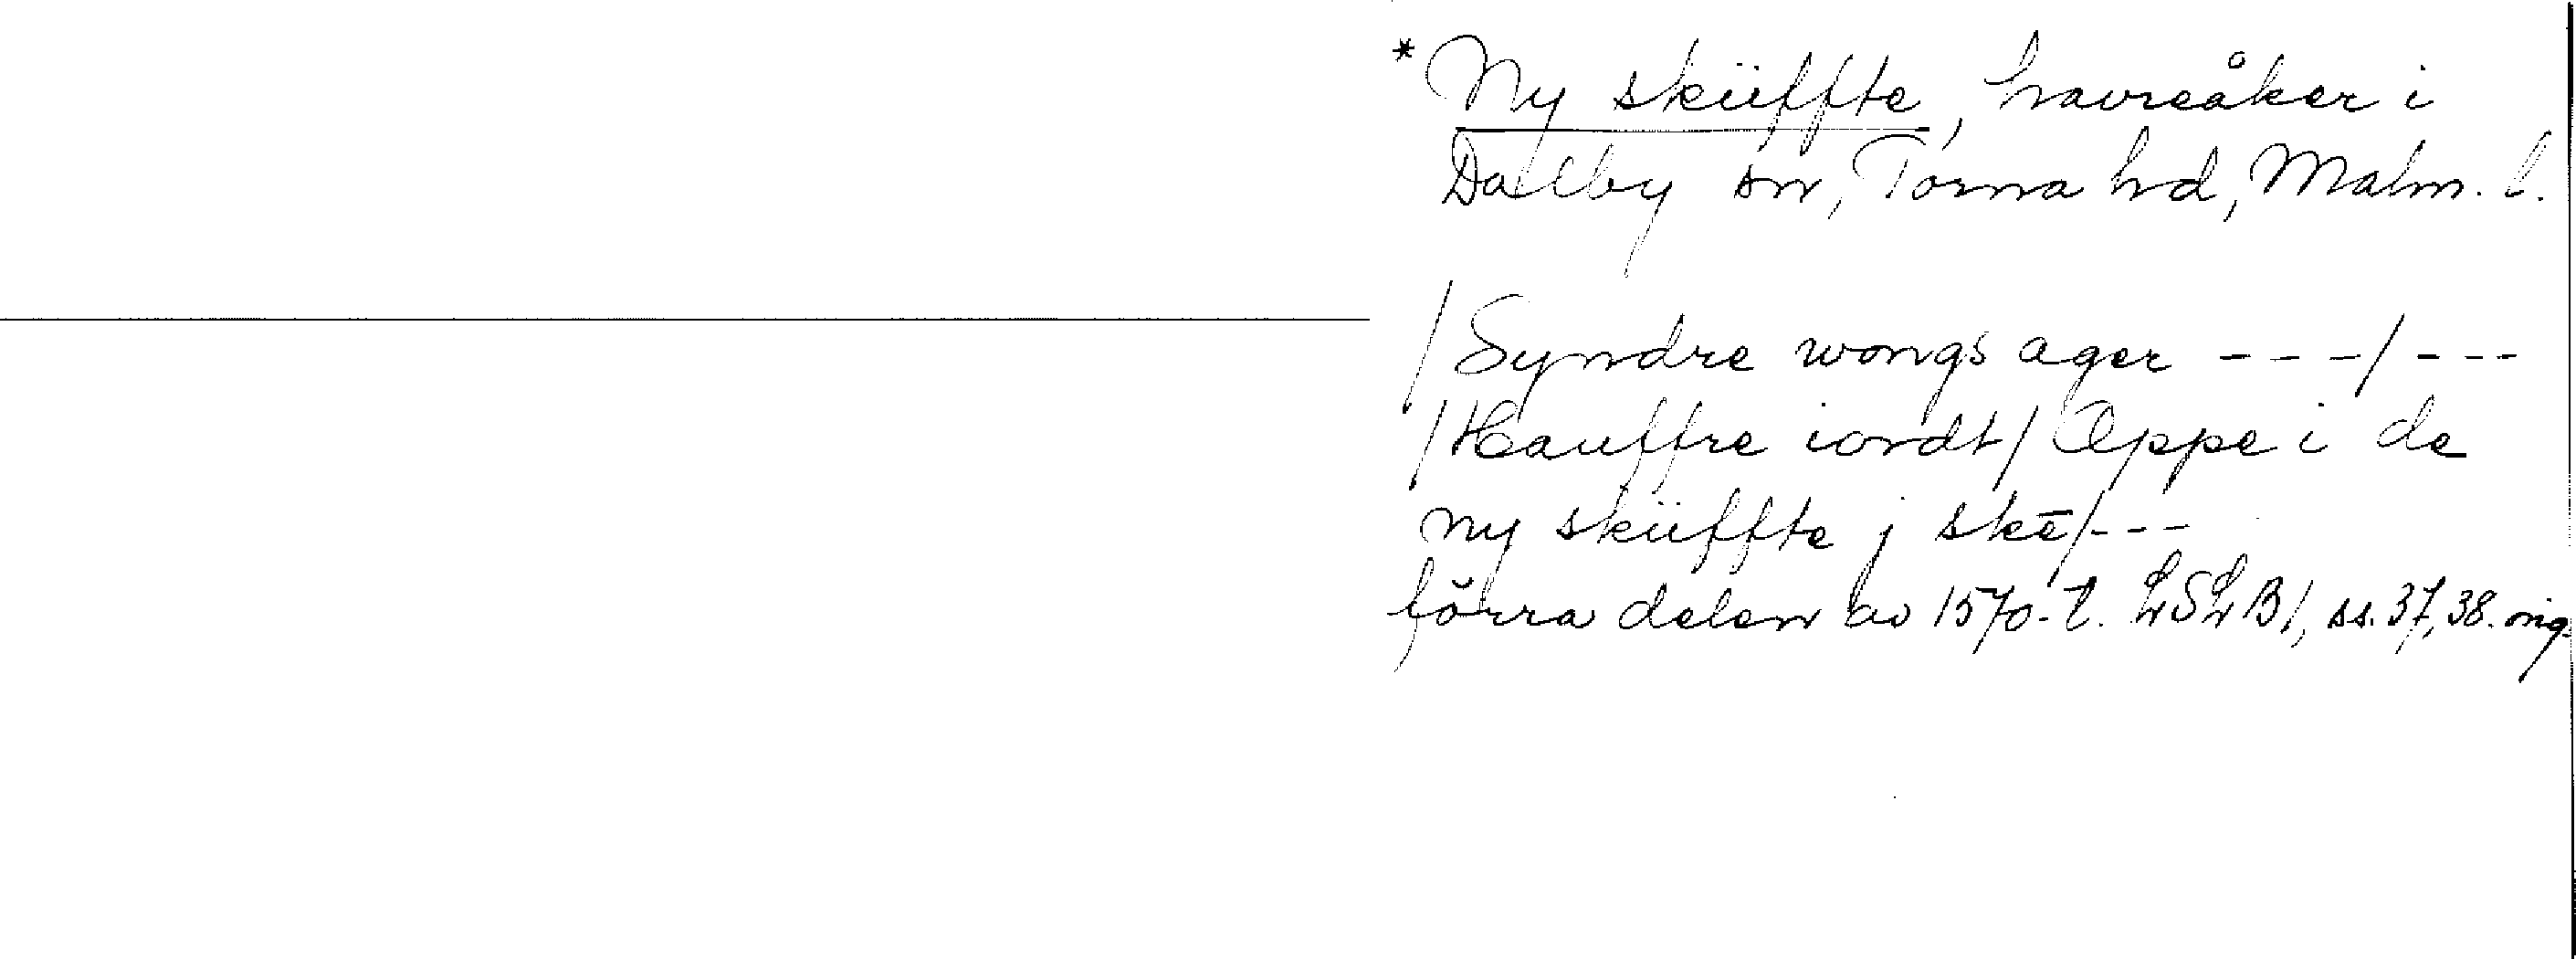 * Ny sküffte, havreåker i
Dalby sn, Torna hd, Malm. l.
/Syndre wongs ager - - -/ - - -
/Hauffre iordt/ Oppe i de
ny sküffte j skē/- - -
förra delen av 1570-t. LSLB1, ss. 37, 38. orig.